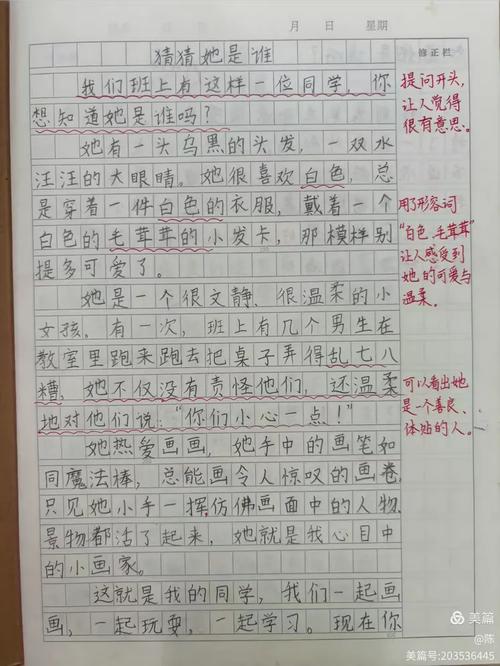 月 日 星期
修正栏
猜猜她是谁
我们班上有这样一位同学，你
想知道她是谁吗？
她有一头乌黑的头发，一双水
汪汪的大眼睛。她很喜欢白色，总
是穿着一件白色的衣服，戴着一个
白色的毛茸茸的小发卡，那模样别
提多可爱了。
她是一个很文静、很温柔的小
女孩。有一次，班上有几个男生在
教室里跑来跑去把桌子弄得乱七八
糟，她不仅没有责怪他们，还温柔
地对他们说：“你们小心一点！”
她热爱画画，她手中的画笔如
同魔法棒，总能画令人惊叹的画卷，
只见她小手一挥仿佛画面中的人物、
景物都活了起来，她就是我心目中
的小画家。
这就是我的同学，我们一起画
画，一起玩耍，一起学习。现在你
提问开头，
让人觉得
很有意思。
用了形容词
“白色、毛茸茸”
让人感受到
她的可爱与
温柔。
可以看出她
是一个善良、
体贴的人。
美篇
@陈
美篇号:203536445